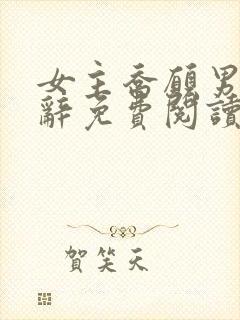 女主喬願男
辭免費閱讀
賀笑天